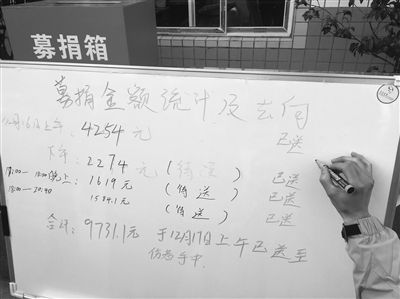 募捐箱
募捐金额统计及去向
12月16日上午: 4254元 已送
下午: 2274元 (待送) 已送
18:00—18:00晚上: 1619元 (待送) 已送
18:00—20:40 1584.1元 (待送) 已送
合计: 9731.1元 于12月17日上午已送至
伤者手中.